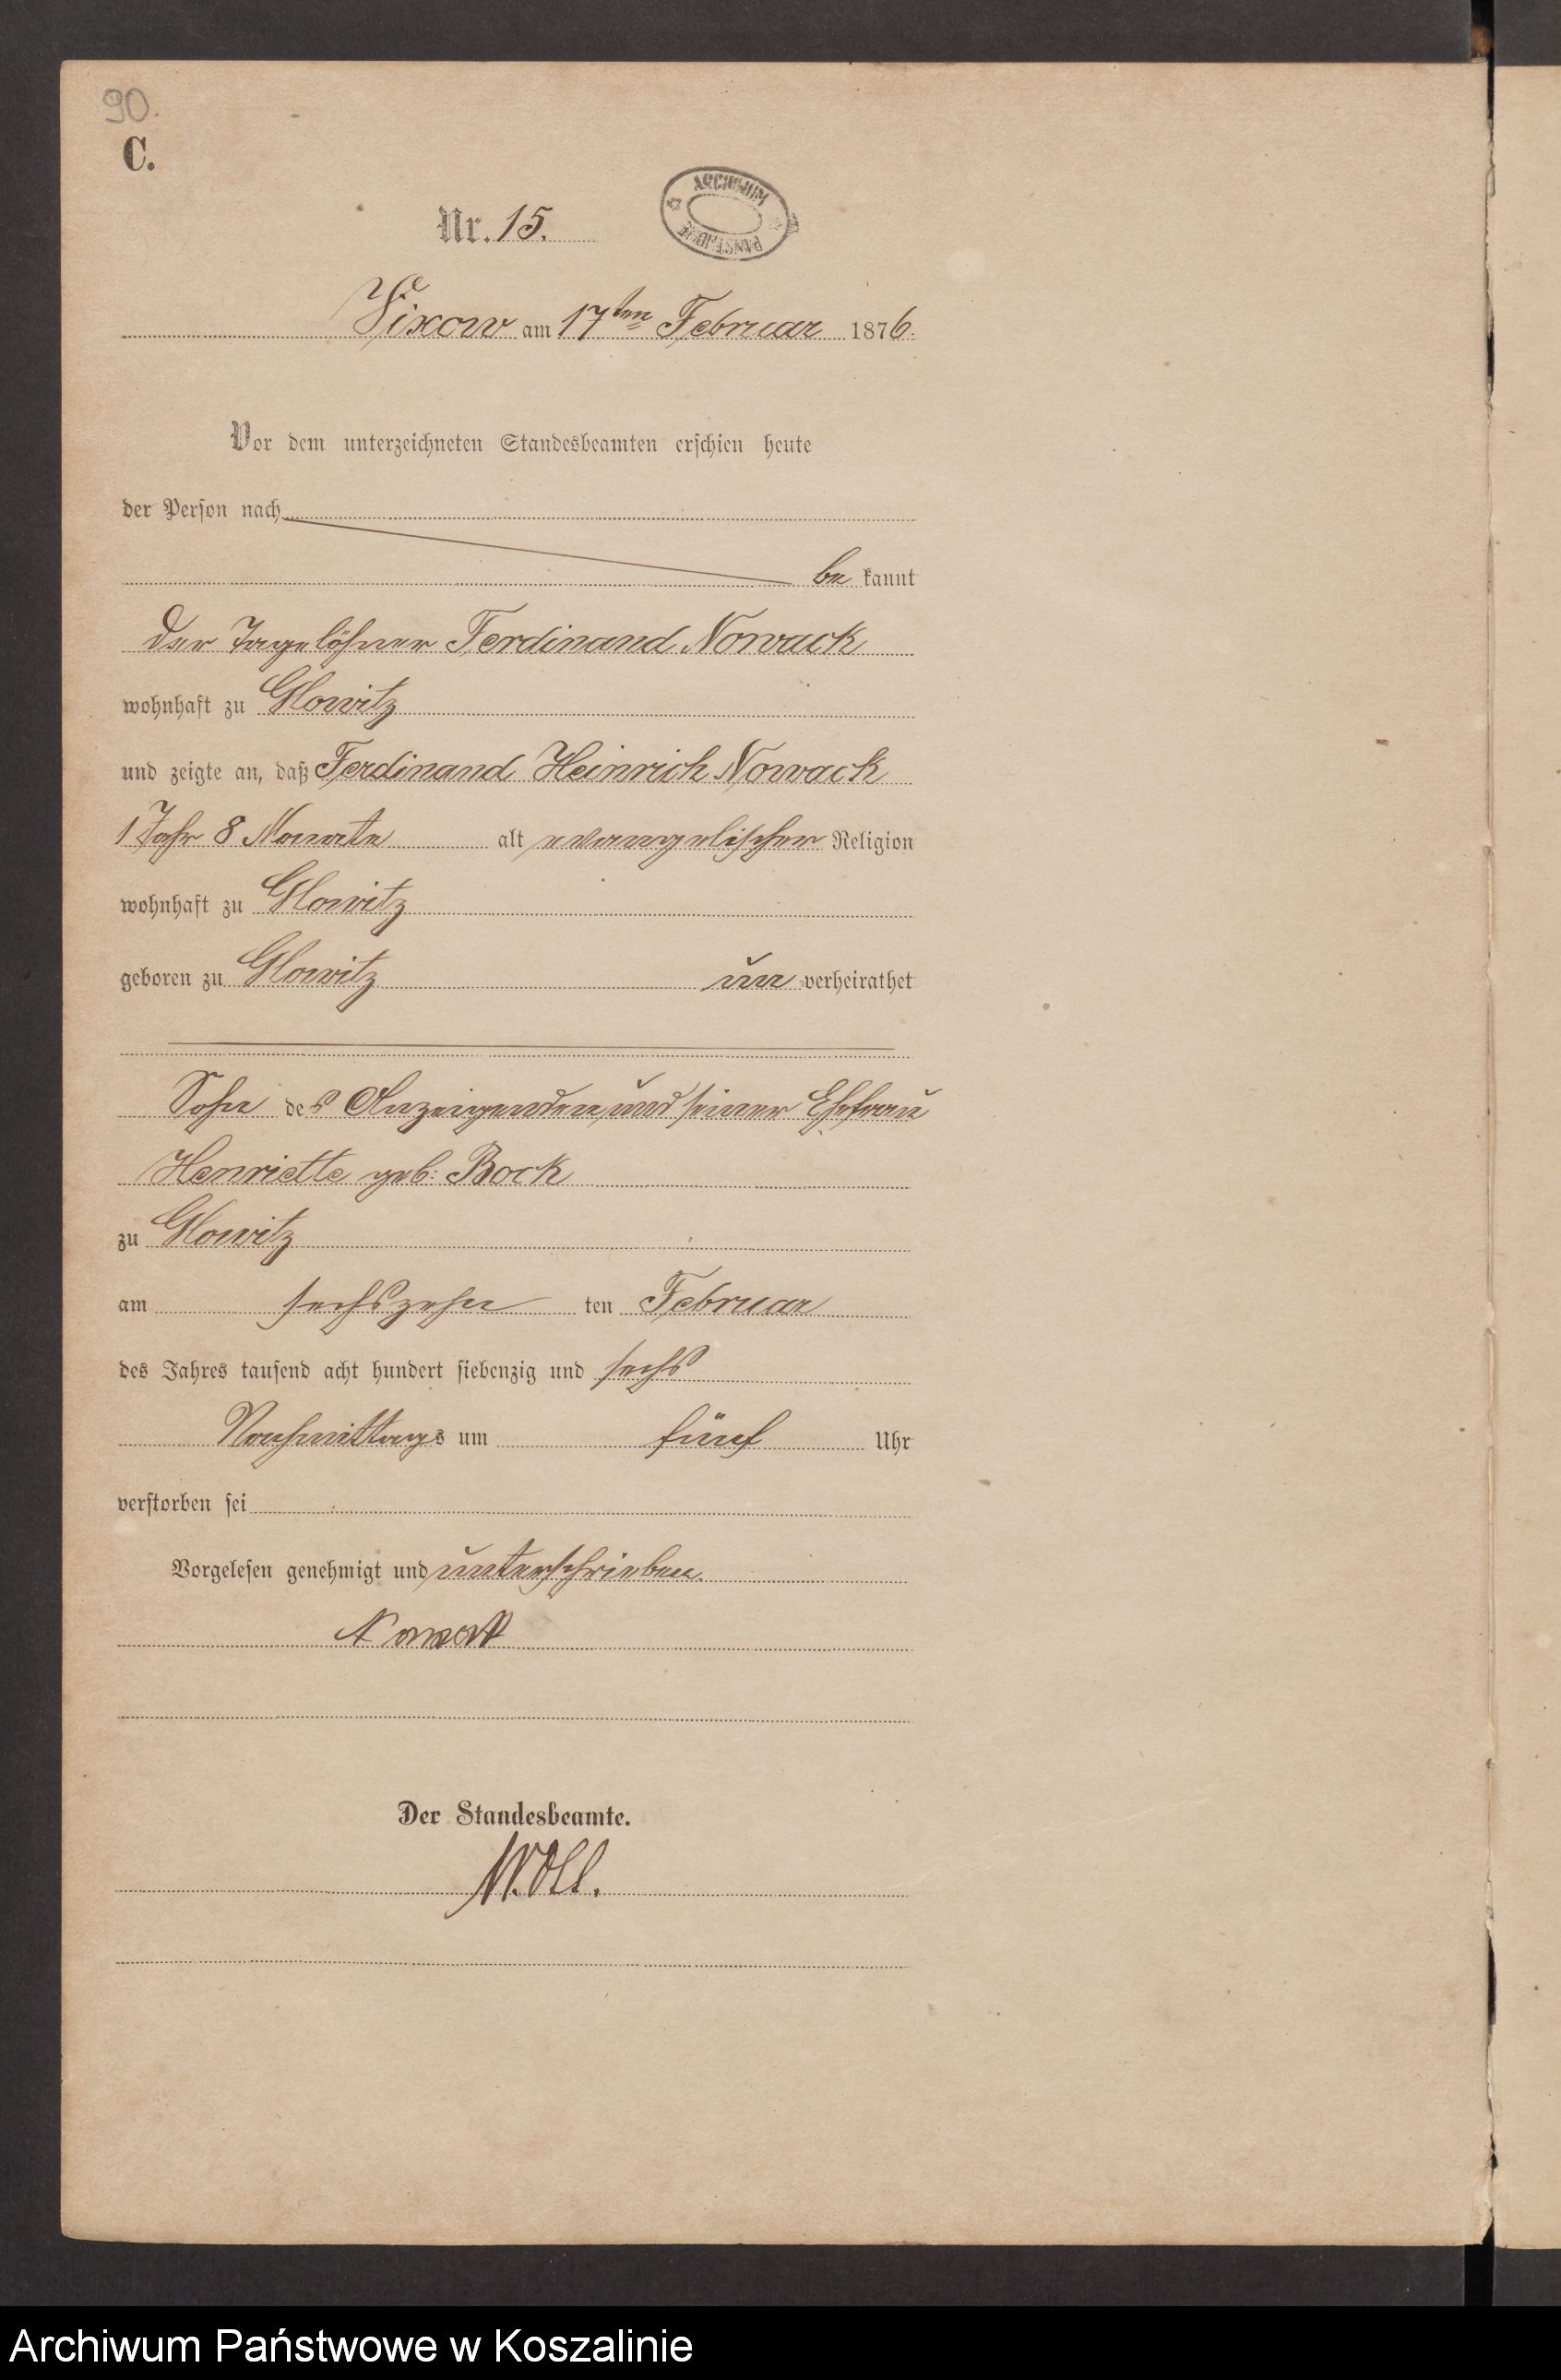 90.
C.
ARCHIWUM
PAŃSTWOWE
Nr. 15.
Vixow am 17ten Februar 1876.
Vor dem unterzeichneten Standesbeamten erschien heute
der Person nach
be kannt
der Tagelöhner Ferdinand Nowack
wohnhaft zu Glowitz
und zeigte an, daß Ferdinand Heinrich Nowack
1 Jahr 8 Monate alt evangelischer Religion
wohnhaft zu Glowitz
geboren zu Glowitz un verheirathet
Sohn des Anzeigenden und seiner Ehefrau
Henriette geb: Bock
zu Glowitz
am sechszehn ten Februar
des Jahres tausend acht hundert siebenzig und sechs
Nachmittags um fünf Uhr
verstorben sei
Vorgelesen genehmigt und unterschrieben.
Nowack
Der Standesbeamte.
Archiwum Państwowe w Koszalinie